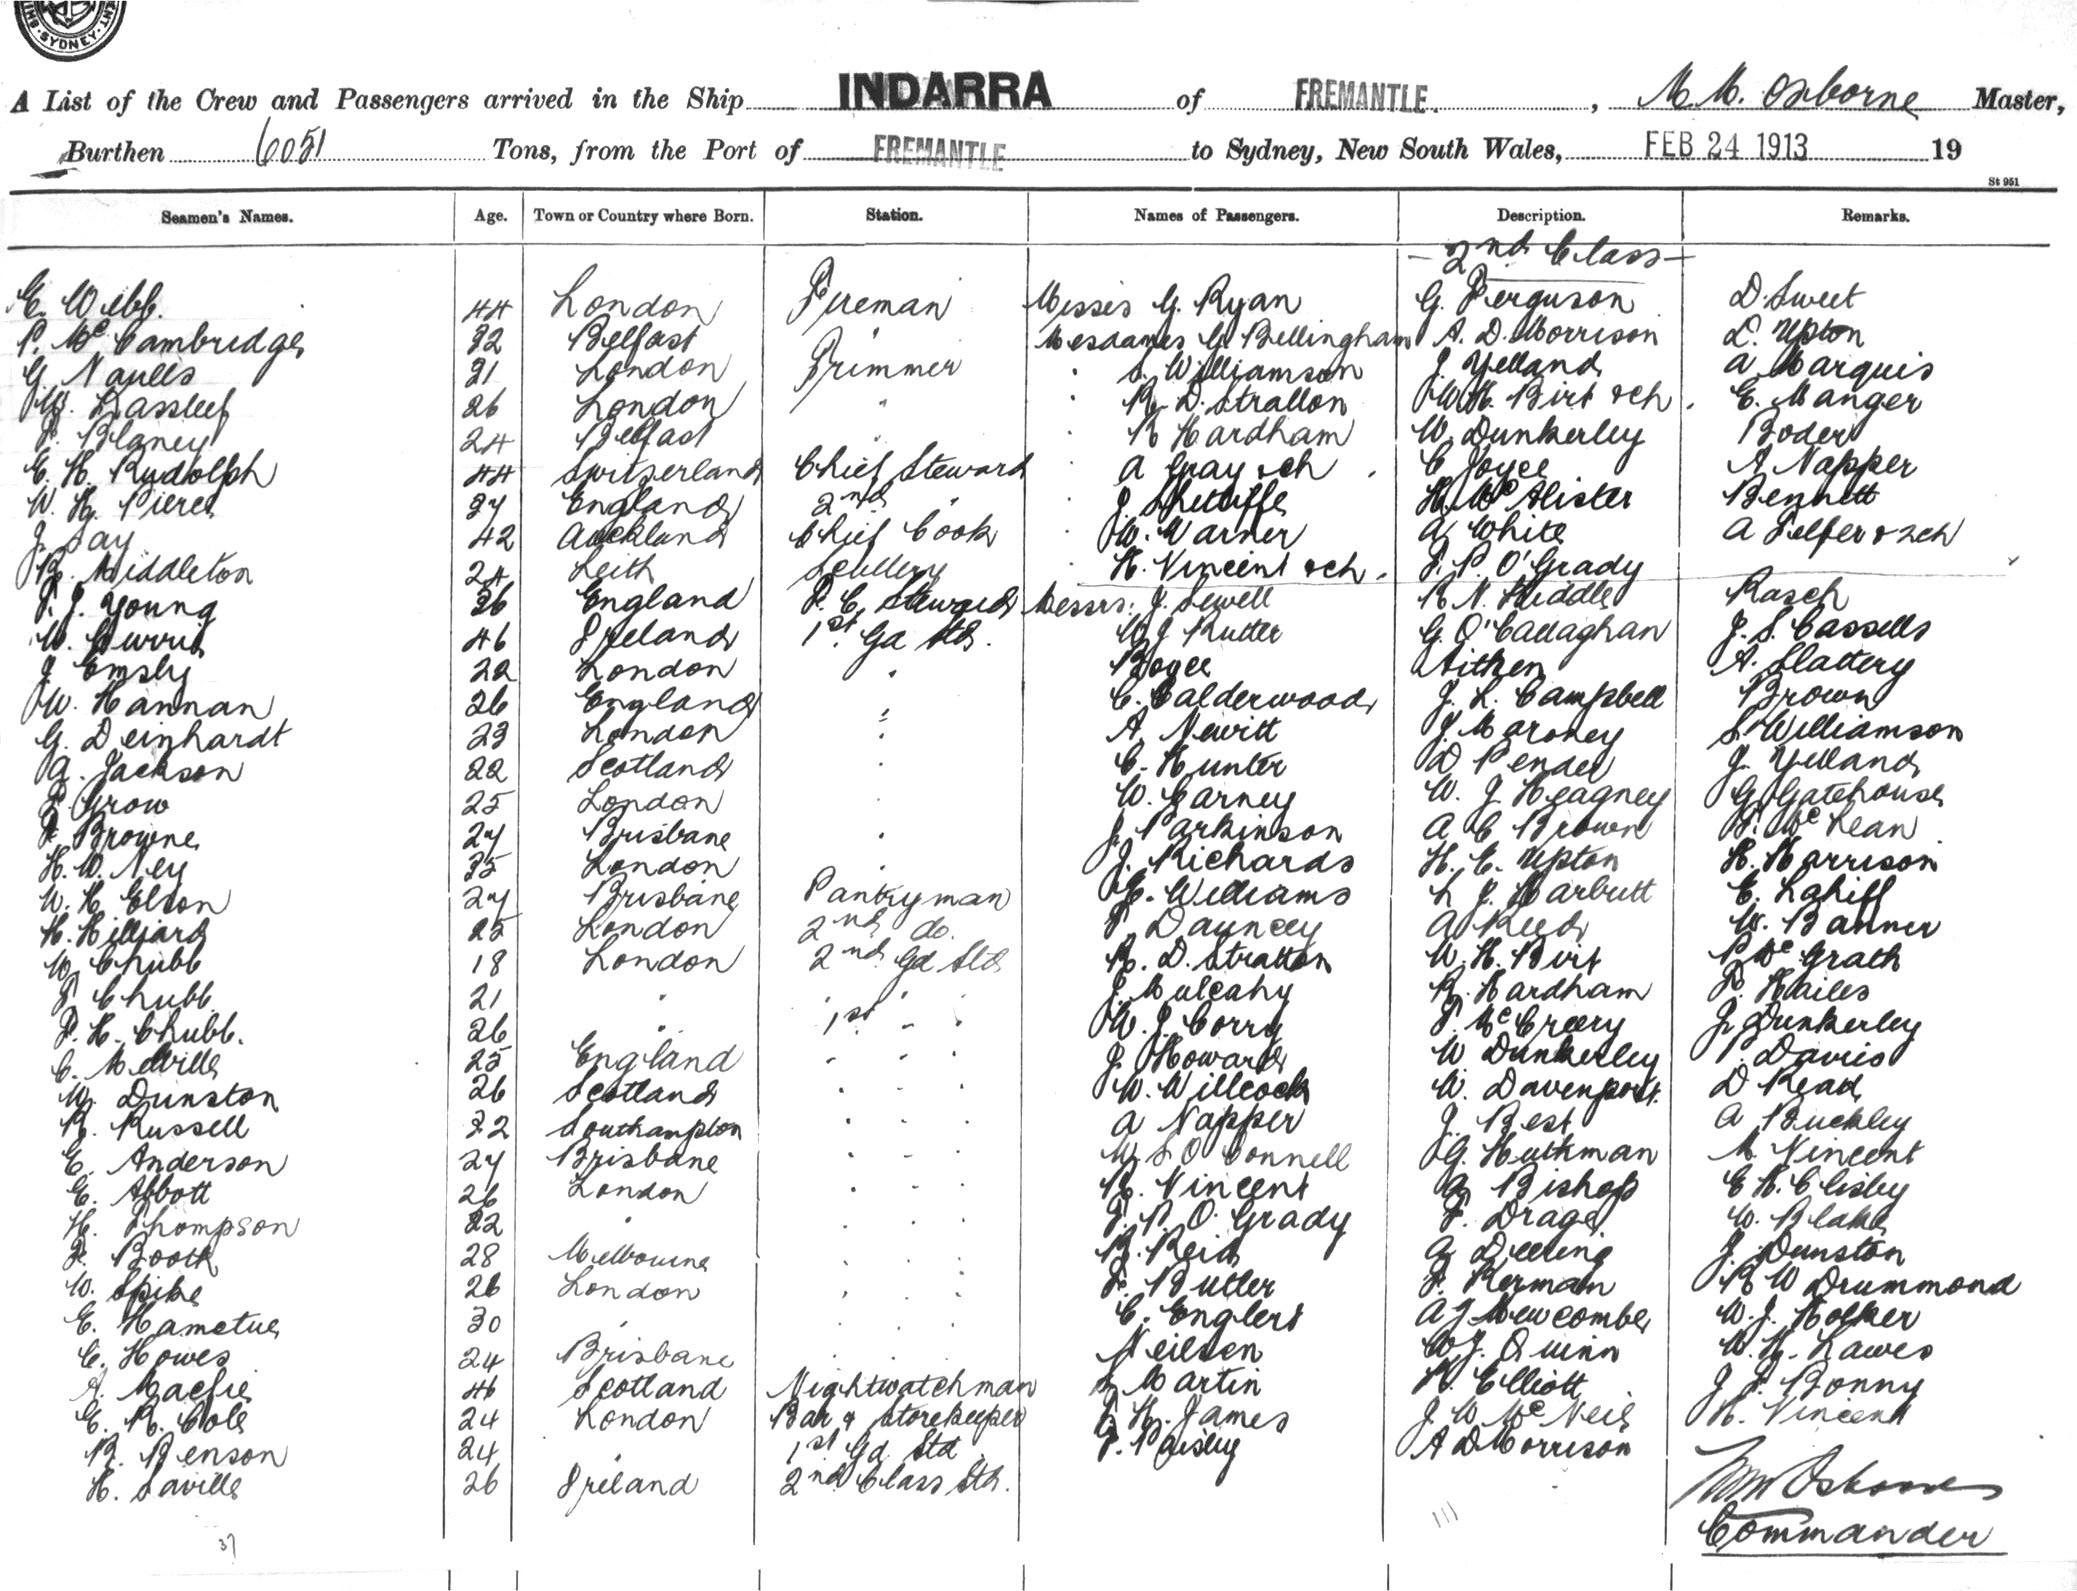 SYDNEY
A List of the Crew and Passengers arrived in the Ship INDARRA of FREMANTLE, M. M. Osborne Master,
Burthen 6051 Tons, from the Port of FREMANTLE to Sydney, New South Wales, FEB 24 1913 19
St 951
Seamen's Names. Age. Town or Country where Born. Station. Names of Passengers. Description. Remarks.
2nd Class
E. Webb. 44 London Fireman Misses G. Ryan G. Ferguson D. Sweet
P. McCambridge 32 Belfast Mesdames G. Bellingham A. D. Morrison L. Upton
G. Naulls 21 London Trimmer " S. Williamson J. Yelland A Marquis
W. 26 London " " R. D. Stratton W. H. Birt & ch. E. Manger
F. Blaney 24 Belfast " " R Hardham W. Dunkerley Boder
E. H. Rudolph 44 Switzerland Chief Steward " A Gray & ch. C Joyce A Napper
W. H. Pierce 37 England 2nd " " J. H. McAlister Bennett
J. Say 42 Auckland Chief Cook " W. Warner A White A Telfer & 2ch
R. Middleton 24 Leith Scullery " H. Vincent & ch. F. P. O'Grady
F. J. Young 36 England F. C. Steward Messrs. J. Sewell R N. Riddle Rasch
W. Currie 46 Ireland 1st Gd Std. W J Rutter G. O'Callaghan J. S. Cassells
J Emsly 22 London " Boyce Aitken A. Slattery
W. Hannan 26 England " C. Calderwood J. L. Campbell Brown
G. Deinhardt 23 London " A. Newitt J. Maroney S Williamson
A. Jackson 22 Scotland " C. Hunter D Pender J. Yelland
F. Grow 25 London " W. Carney W. J Heagney G Gatehouse
F Browne 27 Brisbane " J. Parkinson A C Brown F. McLean
H. W. Ney 35 London " J. Richards H. C. Upton H. Harrison
W. H. Elson 27 Brisbane Pantryman E. Williams L J. Harbutt E. Lahiff
H. Hilliard 25 London 2nd do. F. Dauncey A Reed W. Banner
W. Chubb 18 London 2nd Gd Std R. D. Stratton W. H. Birt P McGrath
F Chubb 21 " " " " J. Mulcahy R. Hardham F. Hailes
F. H. Chubb. 26 " 1st " " W. J. Corry F. McCreery J. Dunkerley
C. Melville 25 England " " " J. Howard W Dunkerley P. Davies
W. Dunston 26 Scotland " " " W. Willcock W. Davenport. D Read
R. Russell 22 Southampton " " " A Napper J. Best A Buckley
E. Anderson 27 Brisbane " " " W. S O'Connell G. Huthman M Vincent
E. Abbott 26 London " " " R. Vincent A Bishop E H. Clisby
H. Thompson 22 " " " " F. P. O'Grady F. Drage W. Blake
F. Booth 28 Melbourne " " " R. Reid A Deering J. Dunston
W. Spike 26 London " " " F. Butler F. Kerman R W Drummond
E. 30 " " " " C. Englert A J Newcombe W. J. Holker
C. Howes 24 Brisbane " " " Neilsen W J. Quinn W. H. Lawes
A. Macfie 46 Scotland Nightwatchman S Martin H. Elliott J F. Bonny
E. R. Cole 24 London Bar & Storekeeper F. H. James J. W. McNeil H. Vincent
R. Benson 24 " 1st Gd Std F. Paisley A D Morrison
H. Saville 26 Ireland 2nd Class Std.
M M Osborne
Commander
37 111